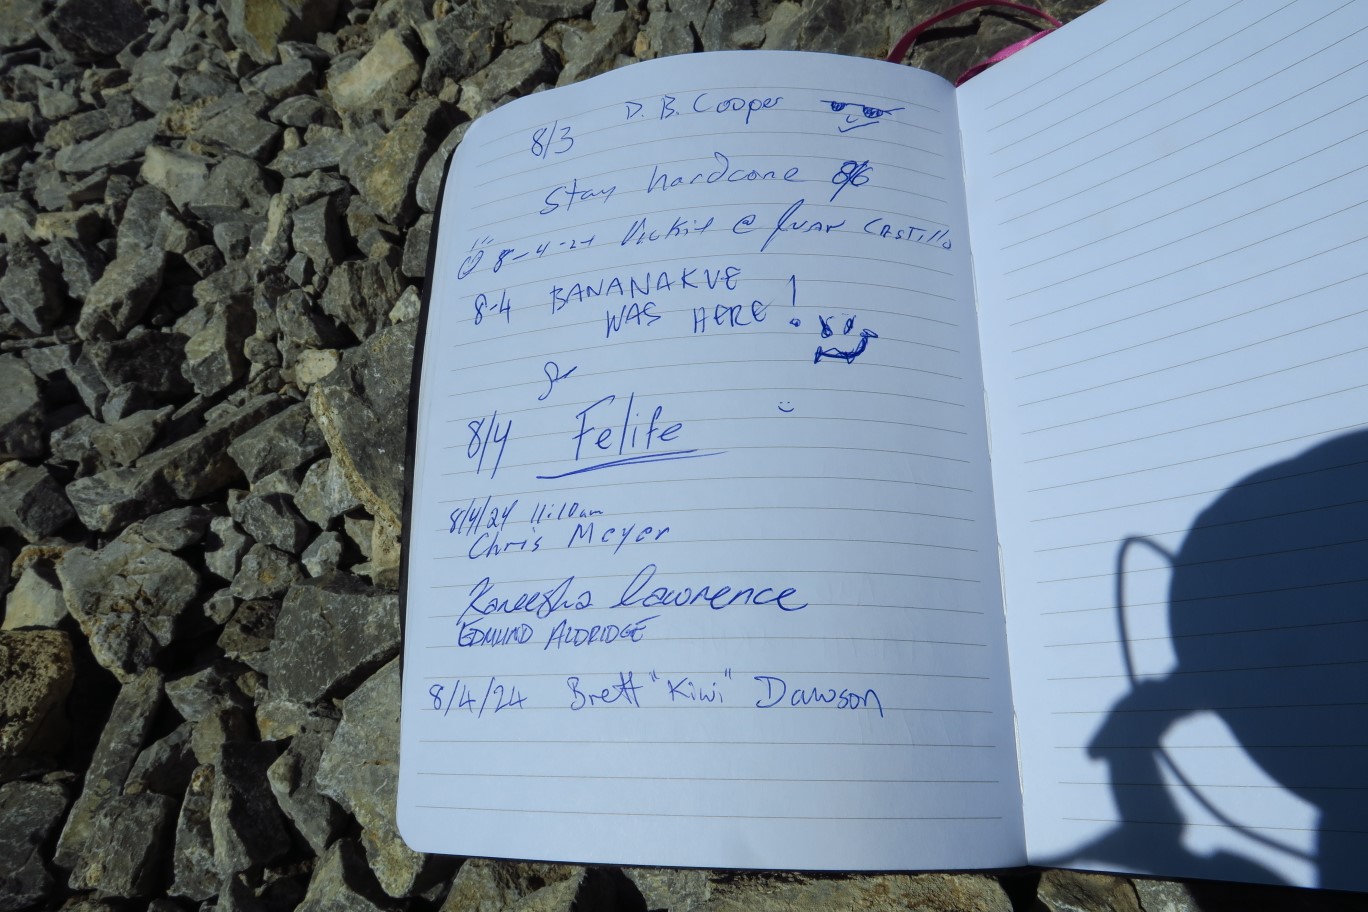 D. B. Cooper
8/3
Stay hardcore 8/6
8-4-24 @ Juan CASTillo
8-4 BANANAKVE
WAS HERE !
8/4 Felife
8/4/24 11:10am
Chris Meyer
Kaneesha lawrence
EDMUND ALDRIDGE
8/4/24 Brett "Kiwi" Dawson